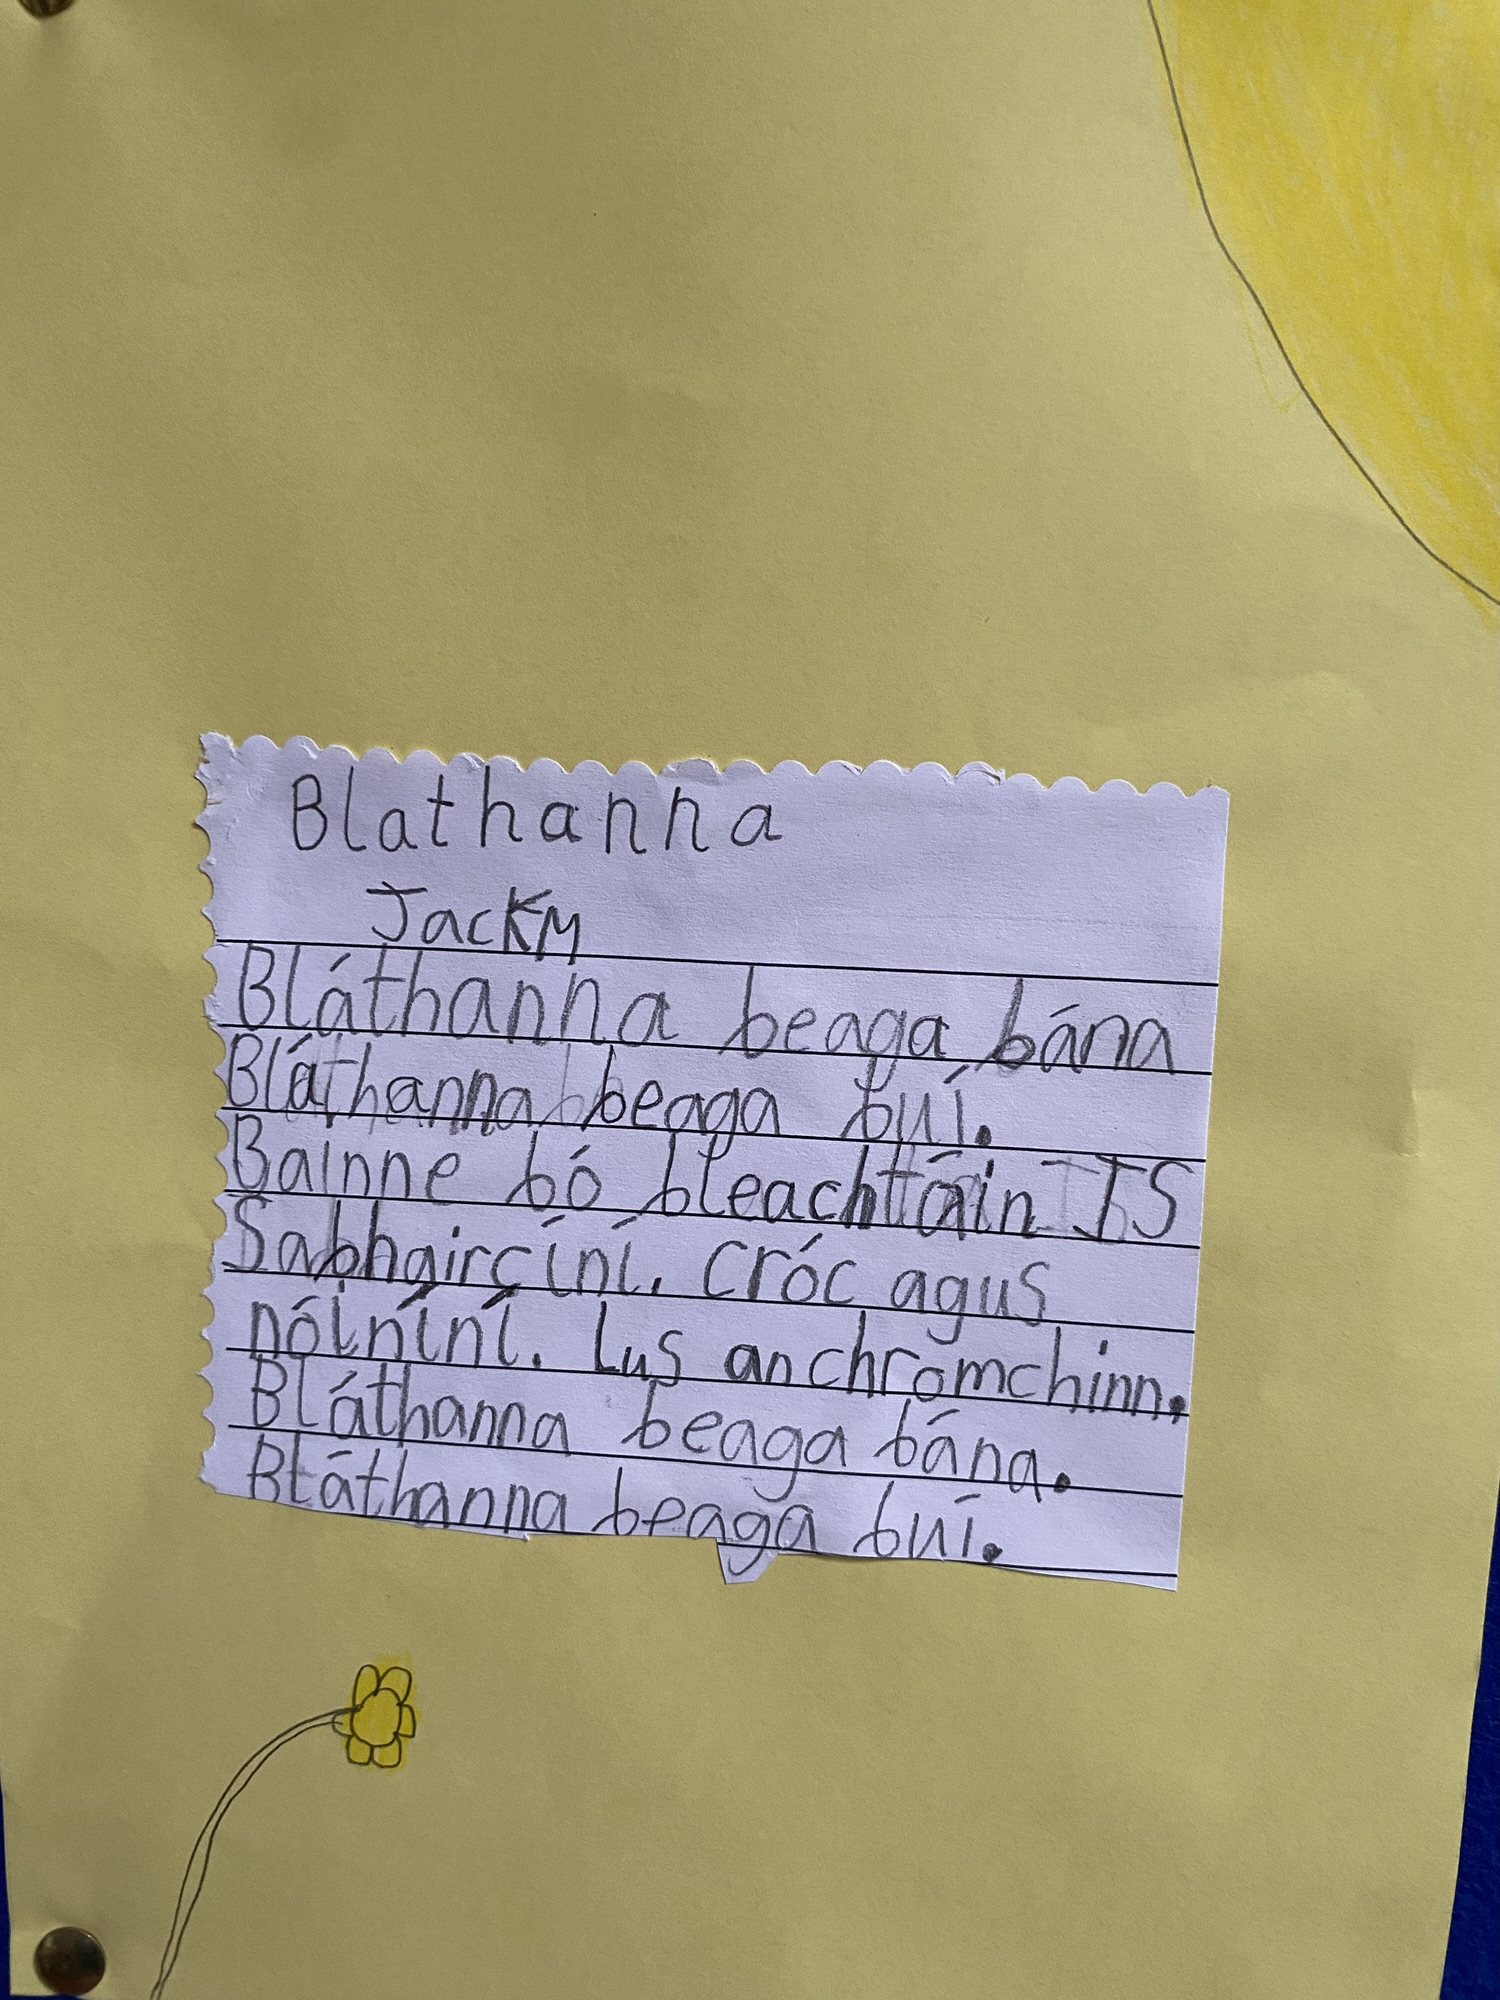 Blathanna
Jack M
Bláthanna beaga bána
Bláthanna beaga buí.
Bainne bó bleachtáin IS
Sabhaircíní. Cróc agus
nóiníní. Lus an chromchinn.
Bláthanna beaga bána.
Bláthanna beaga buí.